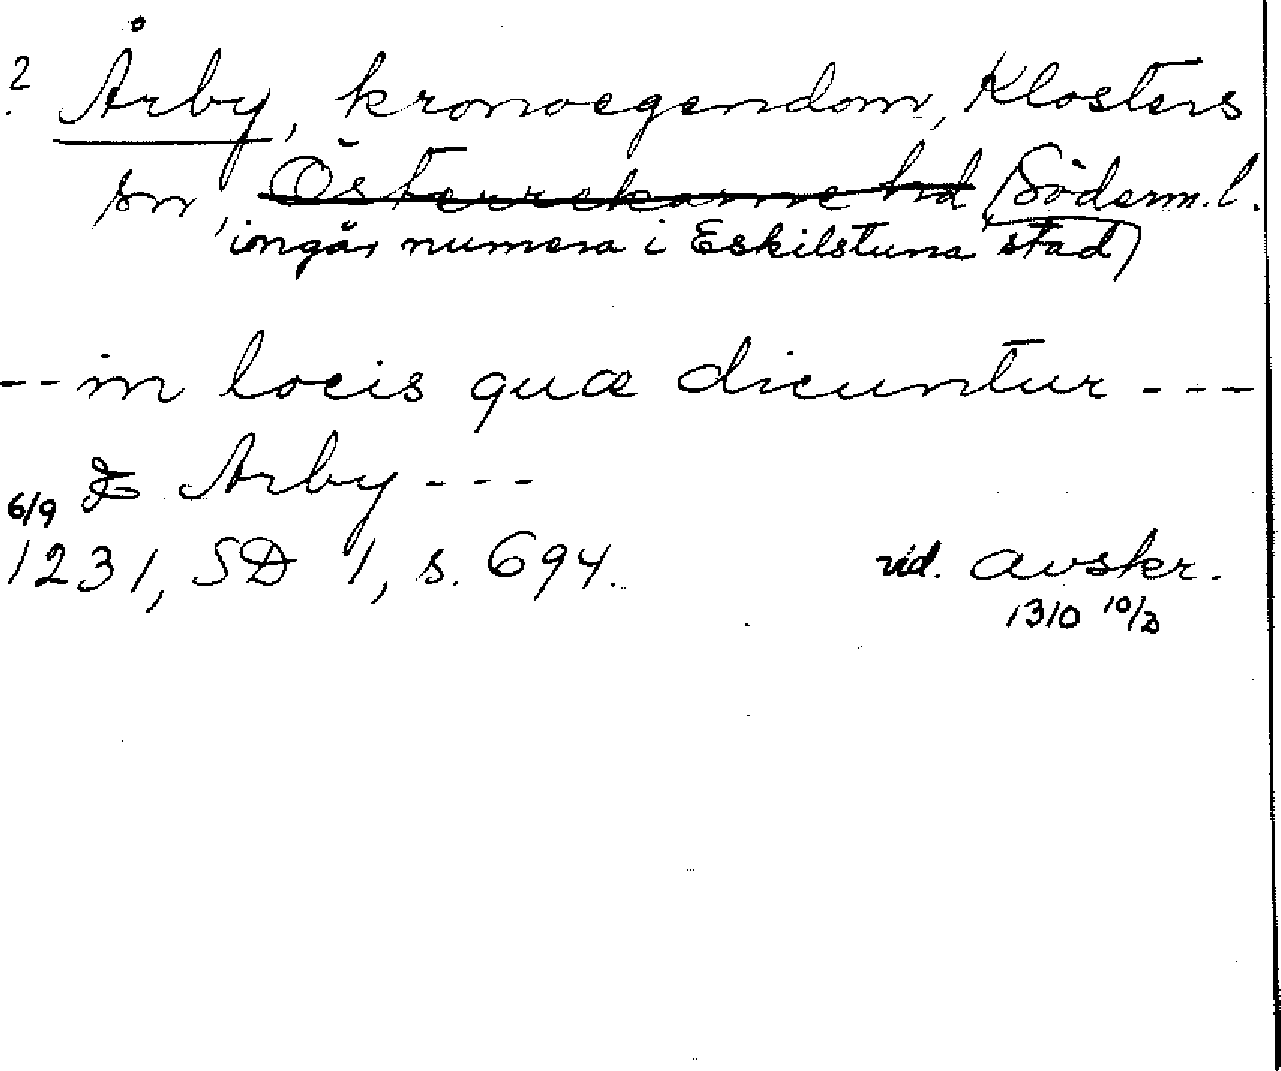 ? Årby, kronoegendom, Klosters
sn, Österrekarne hd (Söderm. l.
ingår numera i Eskilstuna stad)
-- in locis quæ dicuntur ---
& Arby ---
6/9
1231, SD 1, s. 694. vid. avskr.
1310 10/3